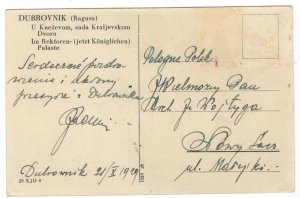 DUBROVNIK (Ragusa)
U Kneževom, sada Kraljevskom
Dvoru
Im Rektoren- (jetzt Königlichen)
Palaste
Serdeczne pozdro-
wienia i ukłony
przesyła z Dubrownika
Dubrownik 21/X 1929
28 KJD 9
Pologne Polsk
Wielmożny Pan
Józef
Nowy Sącz
ul. Matejki